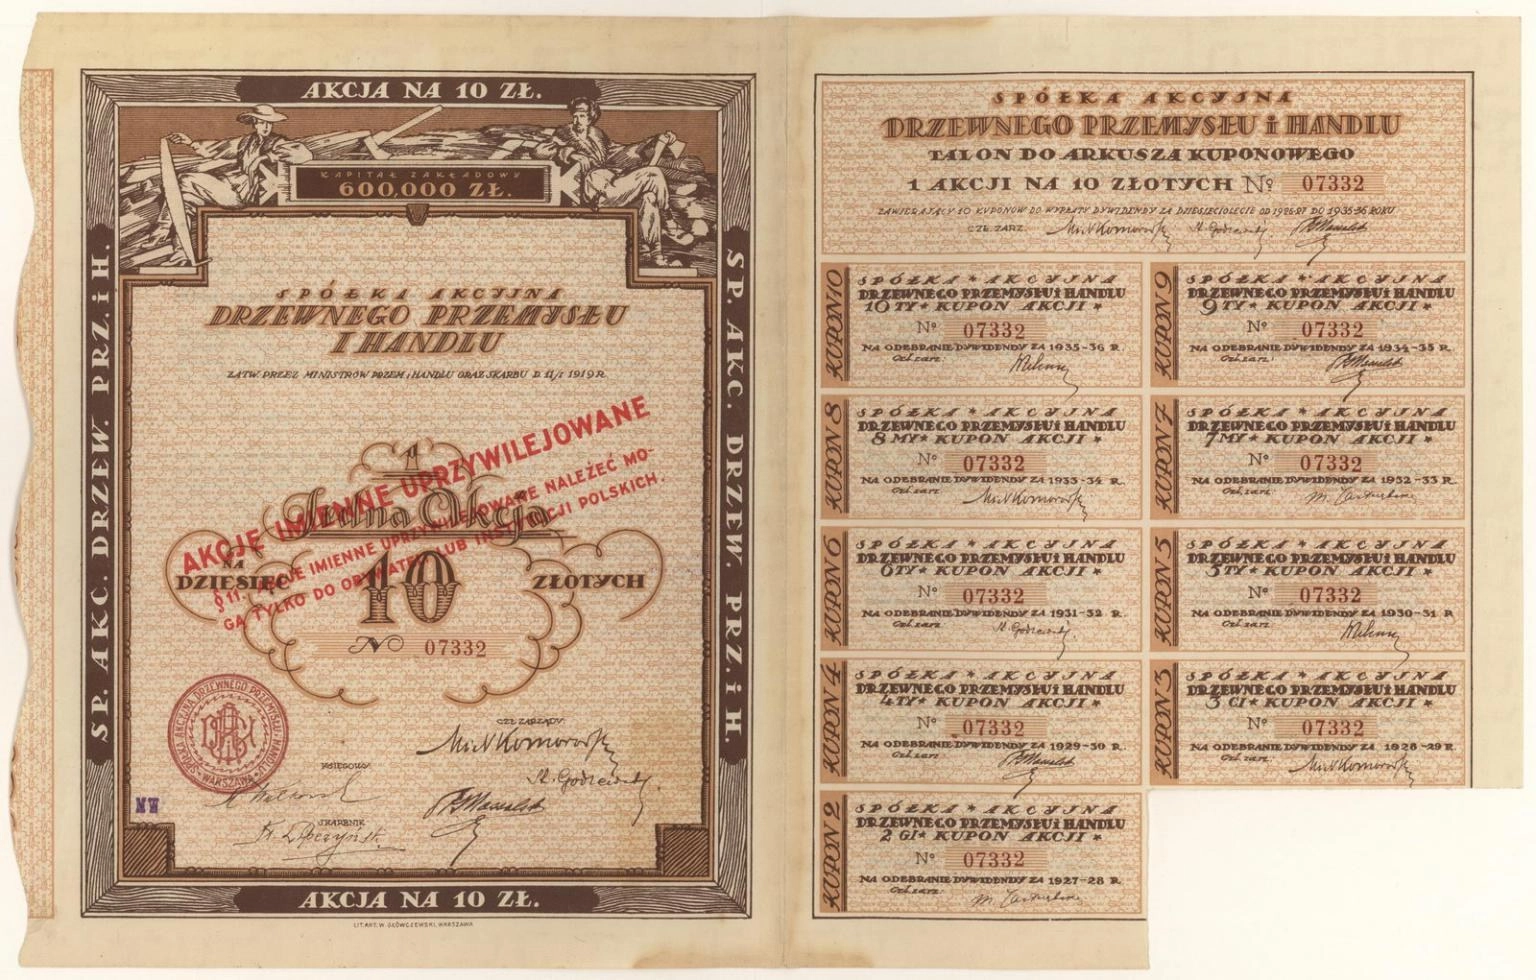 AKCJA NA 10 ZŁ.
KAPITAŁ ZAKŁADOWY
600.000 ZŁ.
SP. AKC. DRZEW. PRZ. i H.
SP. AKC. DRZEW. PRZ. i H.
SPÓŁKA AKCYJNA
DRZEWNEGO PRZEMYSŁU
I HANDLU
ZATW. PRZEZ MINISTRÓW PRZEM. i HANDLU ORAZ SKARBU D. 11/I 1919 R.
1
Jedna Akcja
NA
DZIESIĘĆ 10 ZŁOTYCH
AKCJE IMIENNE UPRZYWILEJOWANE
§ 11. AKCJE IMIENNE UPRZYWILEJOWANE NALEŻEĆ MO-
GĄ TYLKO DO OBYWATELI LUB INSTYTUCJI POLSKICH.
No 07332
SPÓŁKA AKCYJNA DRZEWNEGO PRZEMYSŁU i HANDLU
WARSZAWA
CZŁ. ZARZĄDU:
KSIĘGOWY
SKARBNIK
NW
AKCJA NA 10 ZŁ.
LIT. ART. W. GŁÓWCZEWSKI, WARSZAWA
SPÓŁKA AKCYJNA
DRZEWNEGO PRZEMYSŁU i HANDLU
TALON DO ARKUSZA KUPONOWEGO
1 AKCJI NA 10 ZŁOTYCH No 07332
ZAWIERAJĄCY 10 KUPONÓW DO WYPŁATY DYWIDENDY ZA DZIESIĘCIOLECIE OD 1926-27 DO 1935-36 ROKU
CZŁ. ZARZ.
KUPON 10
SPÓŁKA * AKCYJNA
DRZEWNEGO PRZEMYSŁU i HANDLU
10 TY * KUPON AKCJI *
No 07332
NA ODEBRANIE DYWIDENDY ZA 1935-36 R.
Czł. zarz:
KUPON 9
SPÓŁKA * AKCYJNA
DRZEWNEGO PRZEMYSŁU i HANDLU
9 TY * KUPON AKCJI *
No 07332
NA ODEBRANIE DYWIDENDY ZA 1934-35 R.
Czł. zarz:
KUPON 8
SPÓŁKA * AKCYJNA
DRZEWNEGO PRZEMYSŁU i HANDLU
8 MY * KUPON AKCJI *
No 07332
NA ODEBRANIE DYWIDENDY ZA 1933-34 R.
Czł. zarz:
KUPON 7
SPÓŁKA * AKCYJNA
DRZEWNEGO PRZEMYSŁU i HANDLU
7 MY * KUPON AKCJI *
No 07332
NA ODEBRANIE DYWIDENDY ZA 1932-33 R.
Czł. zarz:
KUPON 6
SPÓŁKA * AKCYJNA
DRZEWNEGO PRZEMYSŁU i HANDLU
6 TY * KUPON AKCJI *
No 07332
NA ODEBRANIE DYWIDENDY ZA 1931-32 R.
Czł. zarz:
KUPON 5
SPÓŁKA * AKCYJNA
DRZEWNEGO PRZEMYSŁU i HANDLU
5 TY * KUPON AKCJI *
No 07332
NA ODEBRANIE DYWIDENDY ZA 1930-31 R.
Czł. zarz:
KUPON 4
SPÓŁKA * AKCYJNA
DRZEWNEGO PRZEMYSŁU i HANDLU
4 TY * KUPON AKCJI *
No 07332
NA ODEBRANIE DYWIDENDY ZA 1929-30 R.
Czł. zarz:
KUPON 3
SPÓŁKA * AKCYJNA
DRZEWNEGO PRZEMYSŁU i HANDLU
3 CI * KUPON AKCJI *
No 07332
NA ODEBRANIE DYWIDENDY ZA 1928-29 R.
Czł. zarz:
KUPON 2
SPÓŁKA * AKCYJNA
DRZEWNEGO PRZEMYSŁU i HANDLU
2 GI * KUPON AKCJI *
No 07332
NA ODEBRANIE DYWIDENDY ZA 1927-28 R.
Czł. zarz: